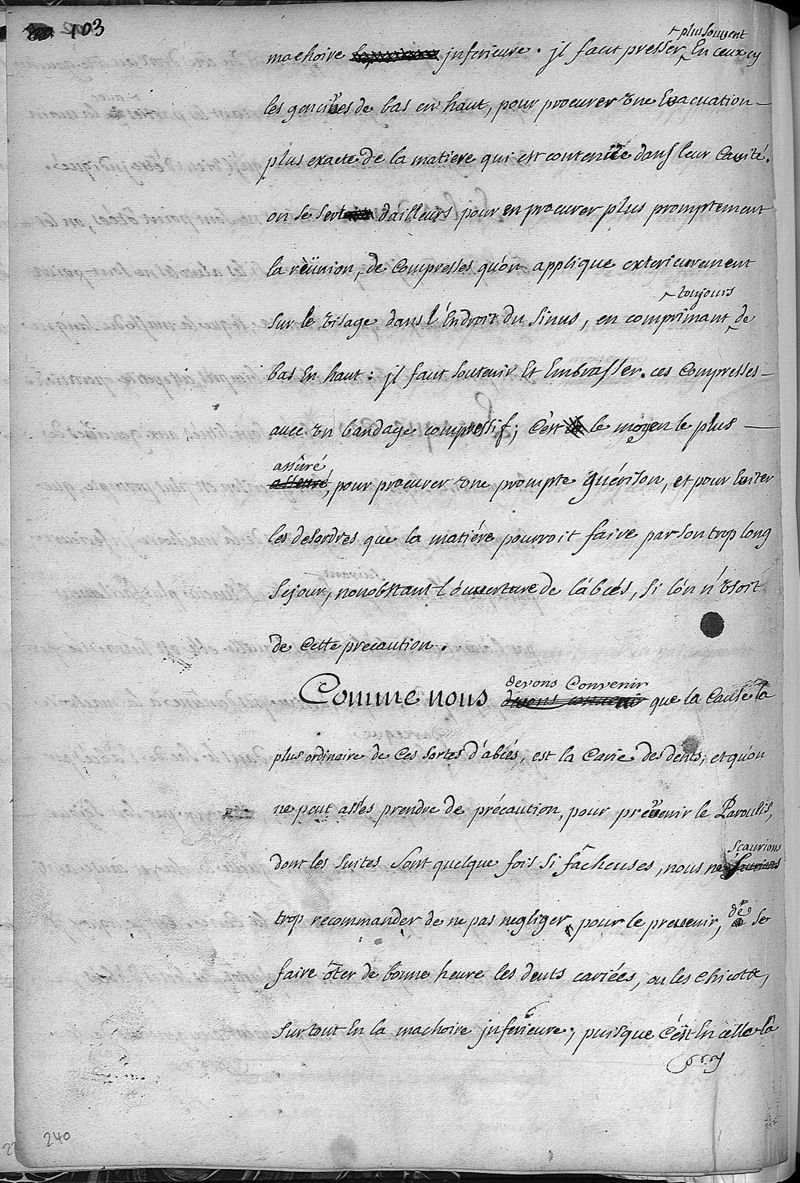 103
plus souvent
machoire inferieure. il faut presser En ceux cy
les gencives de bas en haut, pour procurer une Evacuation
plus exacte de la matiere qui est contenüe dans leur Cavité.
on se sert dailleurs pour en procurer plus promptement
la reünion, de Compresses qu'on applique exterieurement
toujours
sur le visage dans l'Endroit du sinus, en comprimant de
bas En haut : il faut soutenir Et Embrasser ces Compresses
avec un bandage compressif; C'est le moyen le plus
assûré
asseuré, pour procurer une prompte guérison, et pour Eviter
les desordres que la matiére pourroit faire par son trop long
Sejour, nonobstant l'ouverture de l'abcés, si l'on n'usoit
de Cette precaution.
devons Convenir
Comme nous que la Cause la
plus ordinaire de Ces sortes d'abcés, est la Carie des dents, et qu'on
ne peut assés prendre de précaution, pour prévenir le Paroulis,
dont les suites sont quelque fois si fâcheuses, nous ne
sçaurions
trop recommander de ne pas negliger, pour le prevenir, de se
faire ôter de bonne heure les dents cariées, ou les Chicots,
surtout En la machoire inferieure, puisque C'est En celle la
240